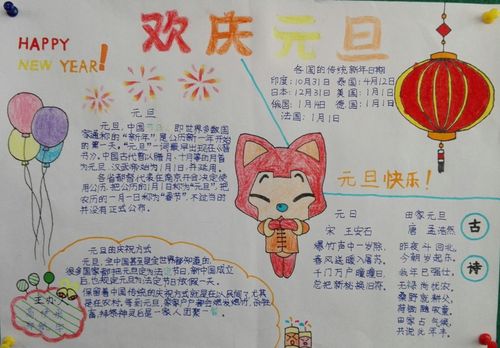 HAPPY
NEW YEAR!
欢庆元旦
各国的传统新年日期
印度:10月31日 泰国:4月12日
日本:12月31日 美国:1月1日
俄国:1月14日 德国:1月1日
法国:1月1日
元旦
元旦,中国节日,即世界多数国
家通称的“新年”,是公历新一年开始
的第一天。“元旦”一词最早出现在《晋
书》。中国古代曾以腊月、十月等的月首
为元旦,汉武帝始为1月1日,并延用。
各省都督代表在南京开会决定使
用公历,把公历的1月1日称为“元旦”,把
农历的一月一日称为“春节”,不过当时
并没有正式公布。
元旦快乐!
元日
宋 王安石
爆竹声中一岁除,
春风送暖入屠苏。
千门万户曈曈日,
总把新桃换旧符。
田家元旦
唐 孟浩然
昨夜斗回北,
今朝岁起东。
我年已强仕,
无禄尚忧农。
桑野就耕父,
荷锄随牧童。
田家占气候,
共说此年丰。
古
诗
元旦的庆祝方式
元旦,全中国甚至是全世界都知道的,
很多国家都把元旦定为法定节日,新中国成立
后,也规定元旦为法定节日放假一天。
保留着中国传统的庆祝方式就是在人民间了尤其
是在农村,每到元旦,家家户户都会燃发爆竹,杀
拜祭神灵后是一家人团聚一餐
主办: